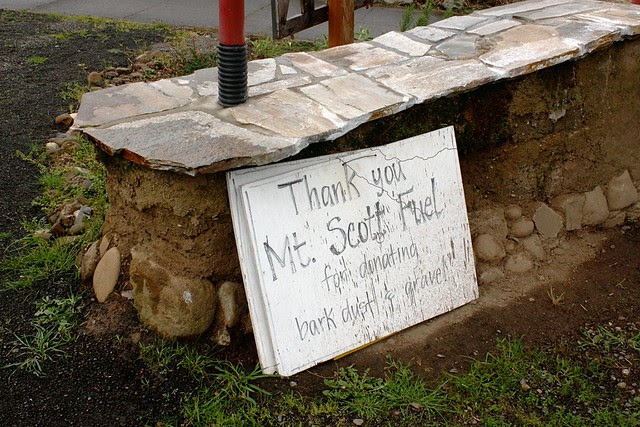 Thank you
Mt. Scott Fuel
for donating
bark dust & gravel!!